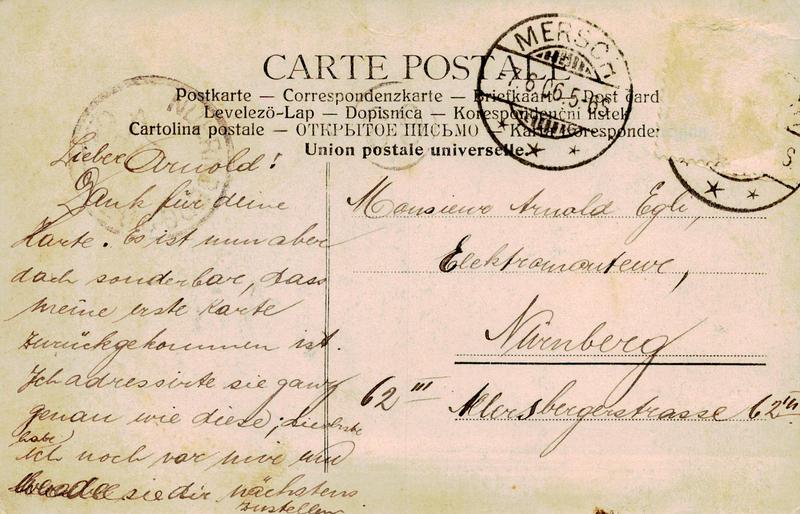 CARTE POSTALE
Postkarte — Correspondenzkarte — Briefkaart — Post card
Levelező-Lap — Dopisnica — Korespondenční lístek
Cartolina postale — ОТКРЫТОЕ ПИСЬМО —
Union postale universelle.
MERSCH
Lieber Arnold!
Dank für deine
Karte. Es ist nun aber
doch sonderbar, dass
meine erste Karte
zurückgekommen ist.
Ich adressirte sie ganz
genau wie diese; die erste
habe
ich noch vor mir und
sie dir nächstens
zustellen
Monsieur Arnold Egli,
Elektromonteur,
Nürnberg
62 III
62 III